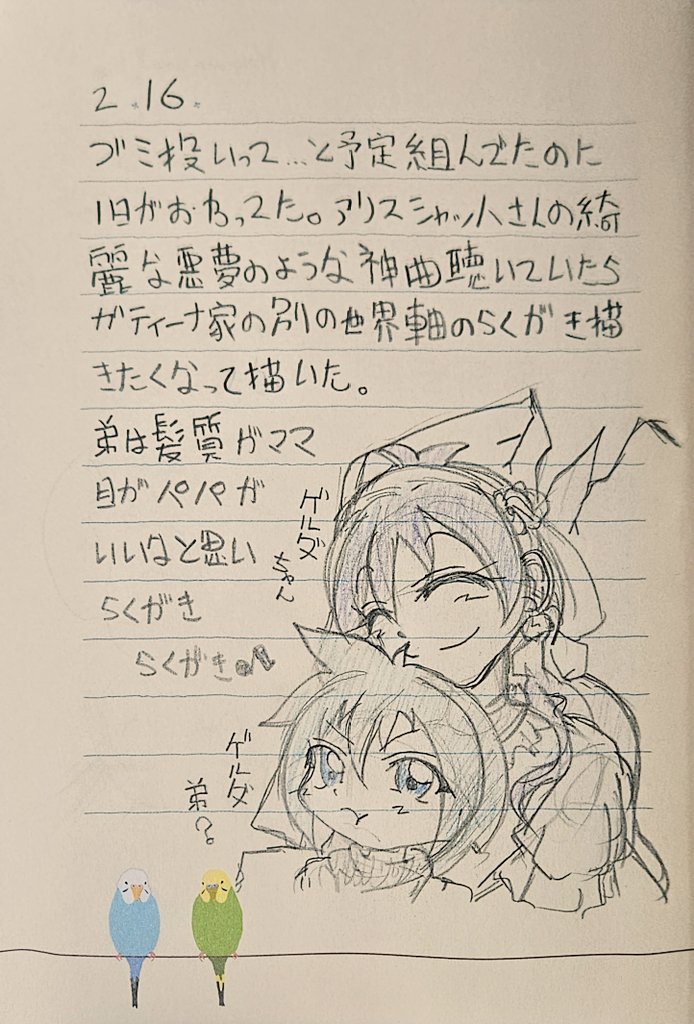 2.16.
ゴミ投いって…と予定組んでたのに
1日がおわってた。アリスシャッハさんの綺
麗な悪夢のような神曲聴いていたら
ガティーナ家の別の世界軸のらくがき描
きたくなって描いた。
弟は髪質がママ
目がパパが
いいなと思い
らくがき
らくがき
ゲルダ
ちゃん
ゲルダ
弟?